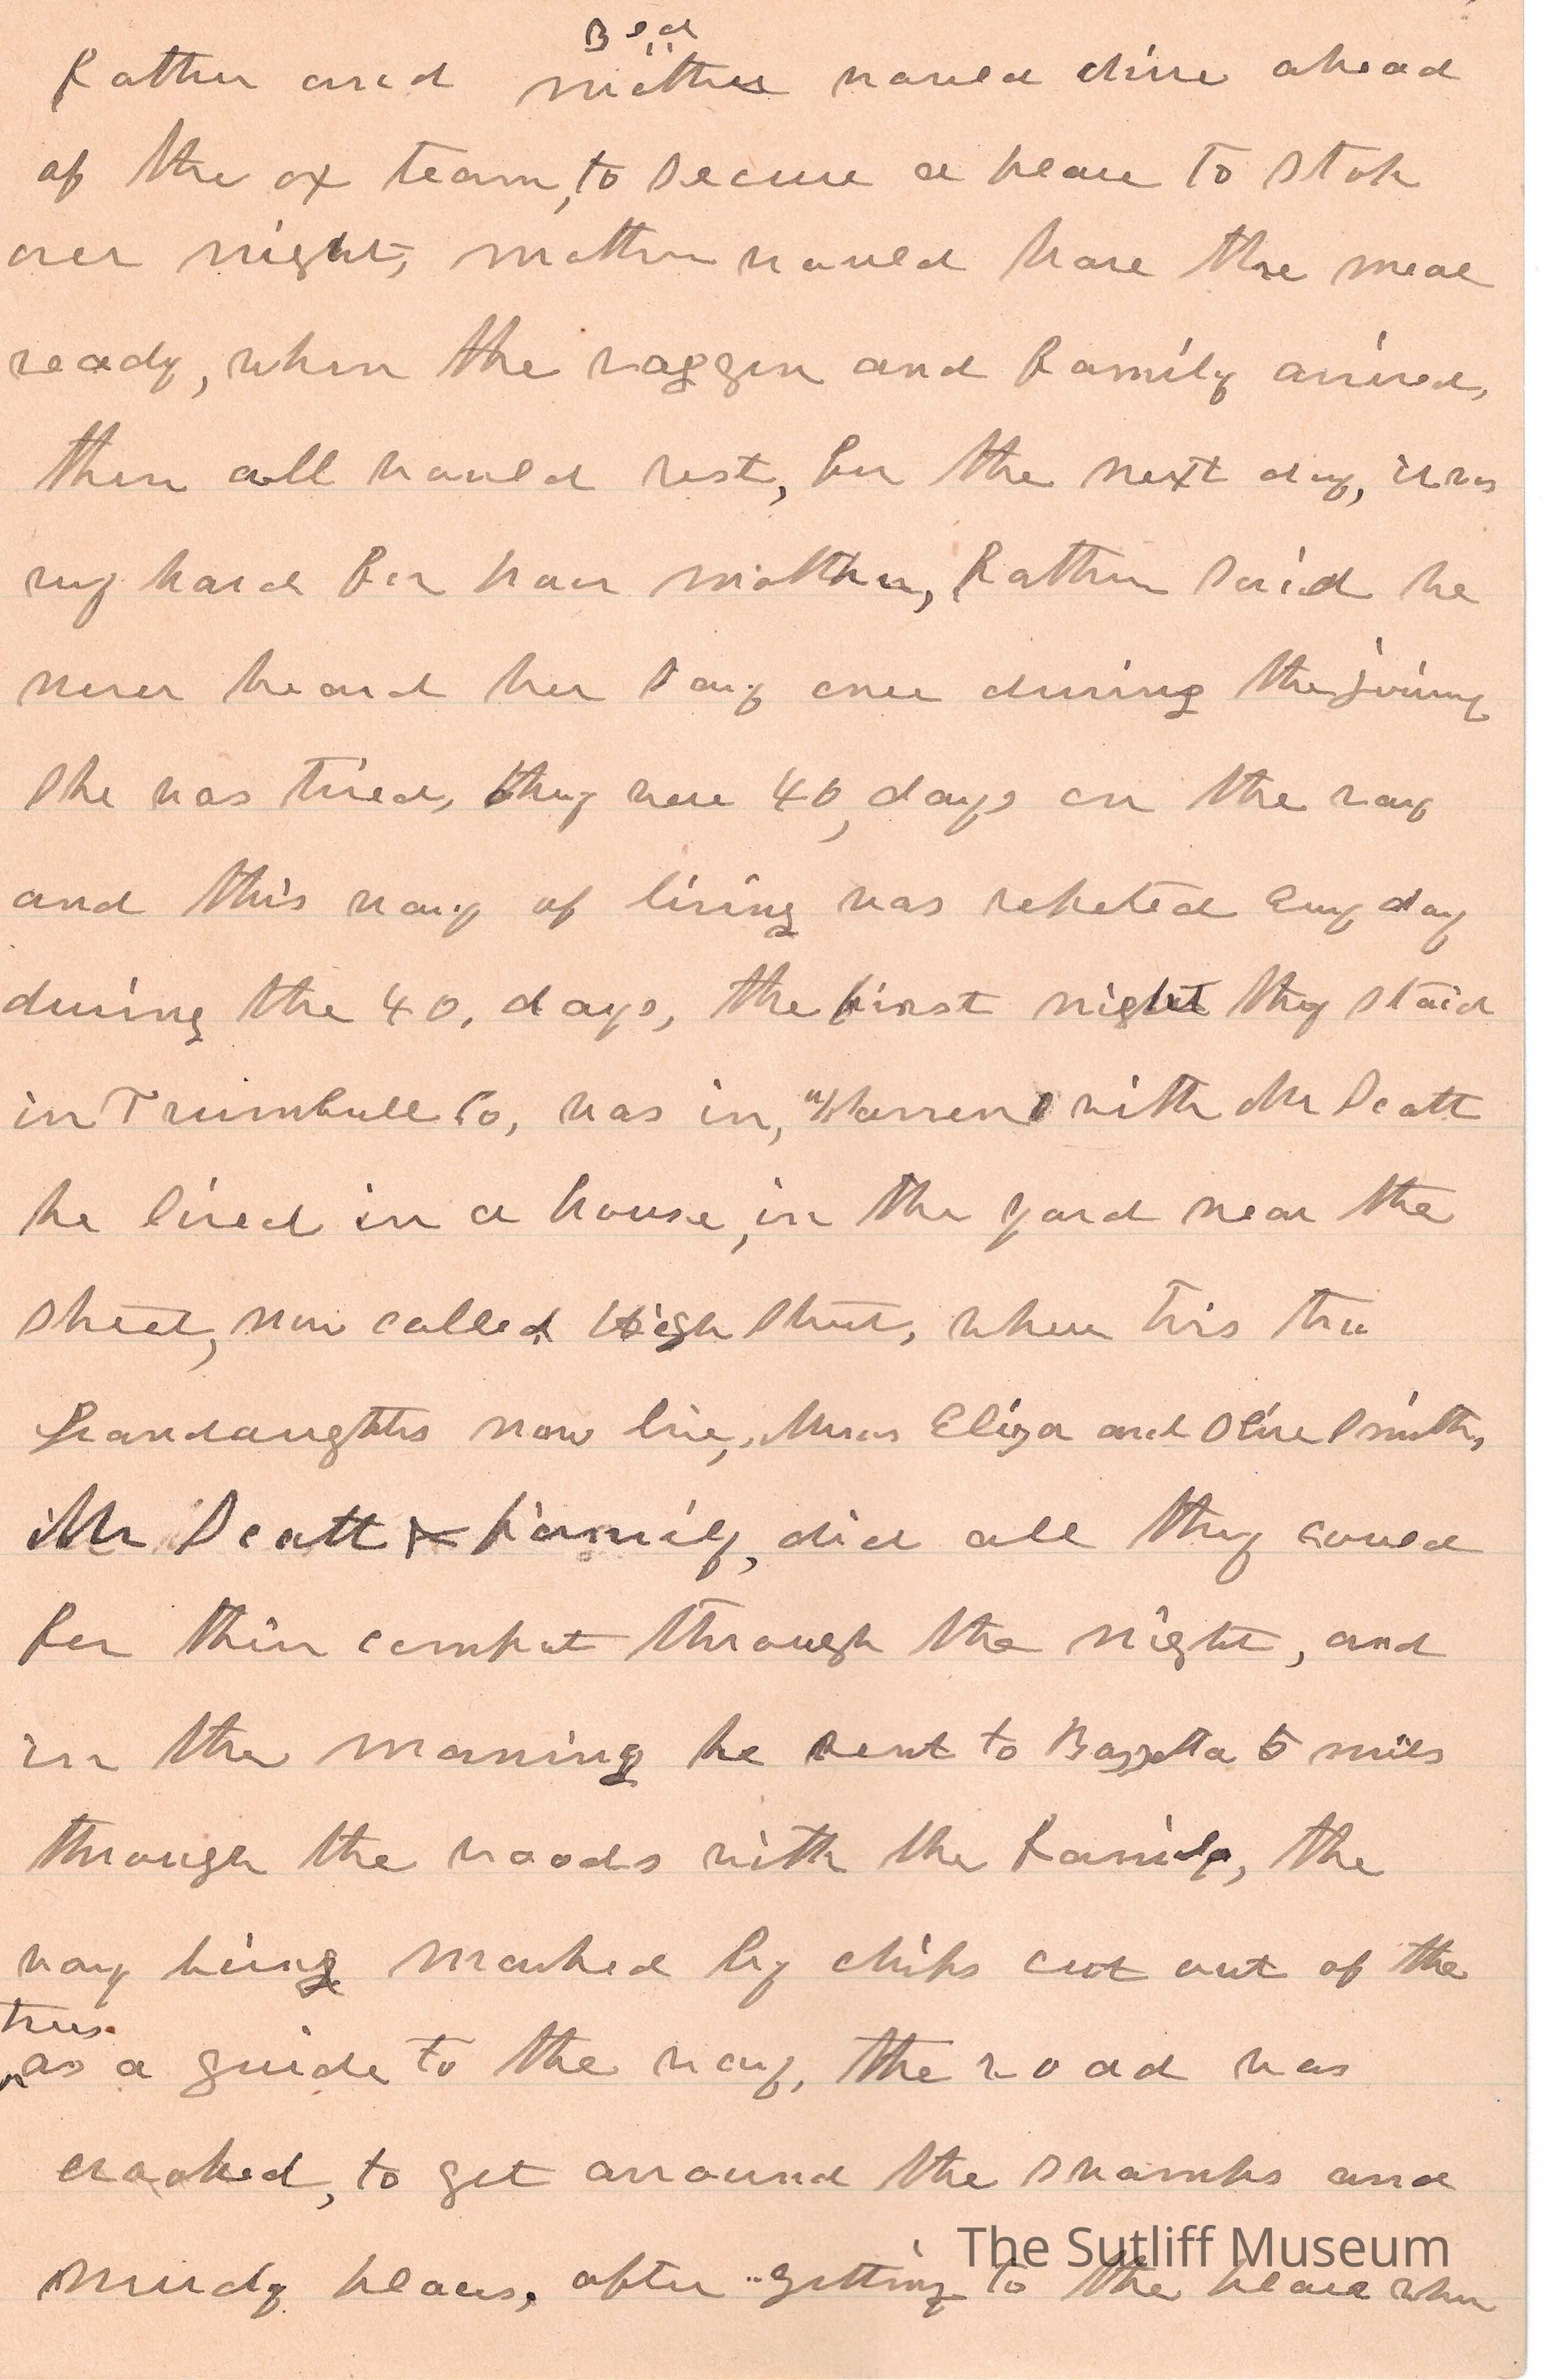 Bed
Father and mother would drive ahead
of the ox team, to secure a place to stop
over night, mother would have the meal
ready, when the waggon and family arrived,
then all would rest, for the next day, it was
very hard for poor mother, father said he
never heard her say once during the journy
She was tired, they were 40, days on the way
and this way of living was repeted every day
during the 40, days, the first night they staid
in Trumbull Co, was in, "Warren" with Mr Scott
he lived in a house, in the yard near the
street, now called High Street, where his two
Grandaughtrs now live, Misses Eliza and Olive Smith,
Mr Scott & family, did all they could
for their comfort through the night, and
in the morning he sent to Bazzetta 5 miles
through the woods with the family, the
way being marked by chips cut out of the
trees
as a guide to the way, the road was
crooked, to get arround the swamps and
mudy places, after getting to the place when
The Sutliff Museum